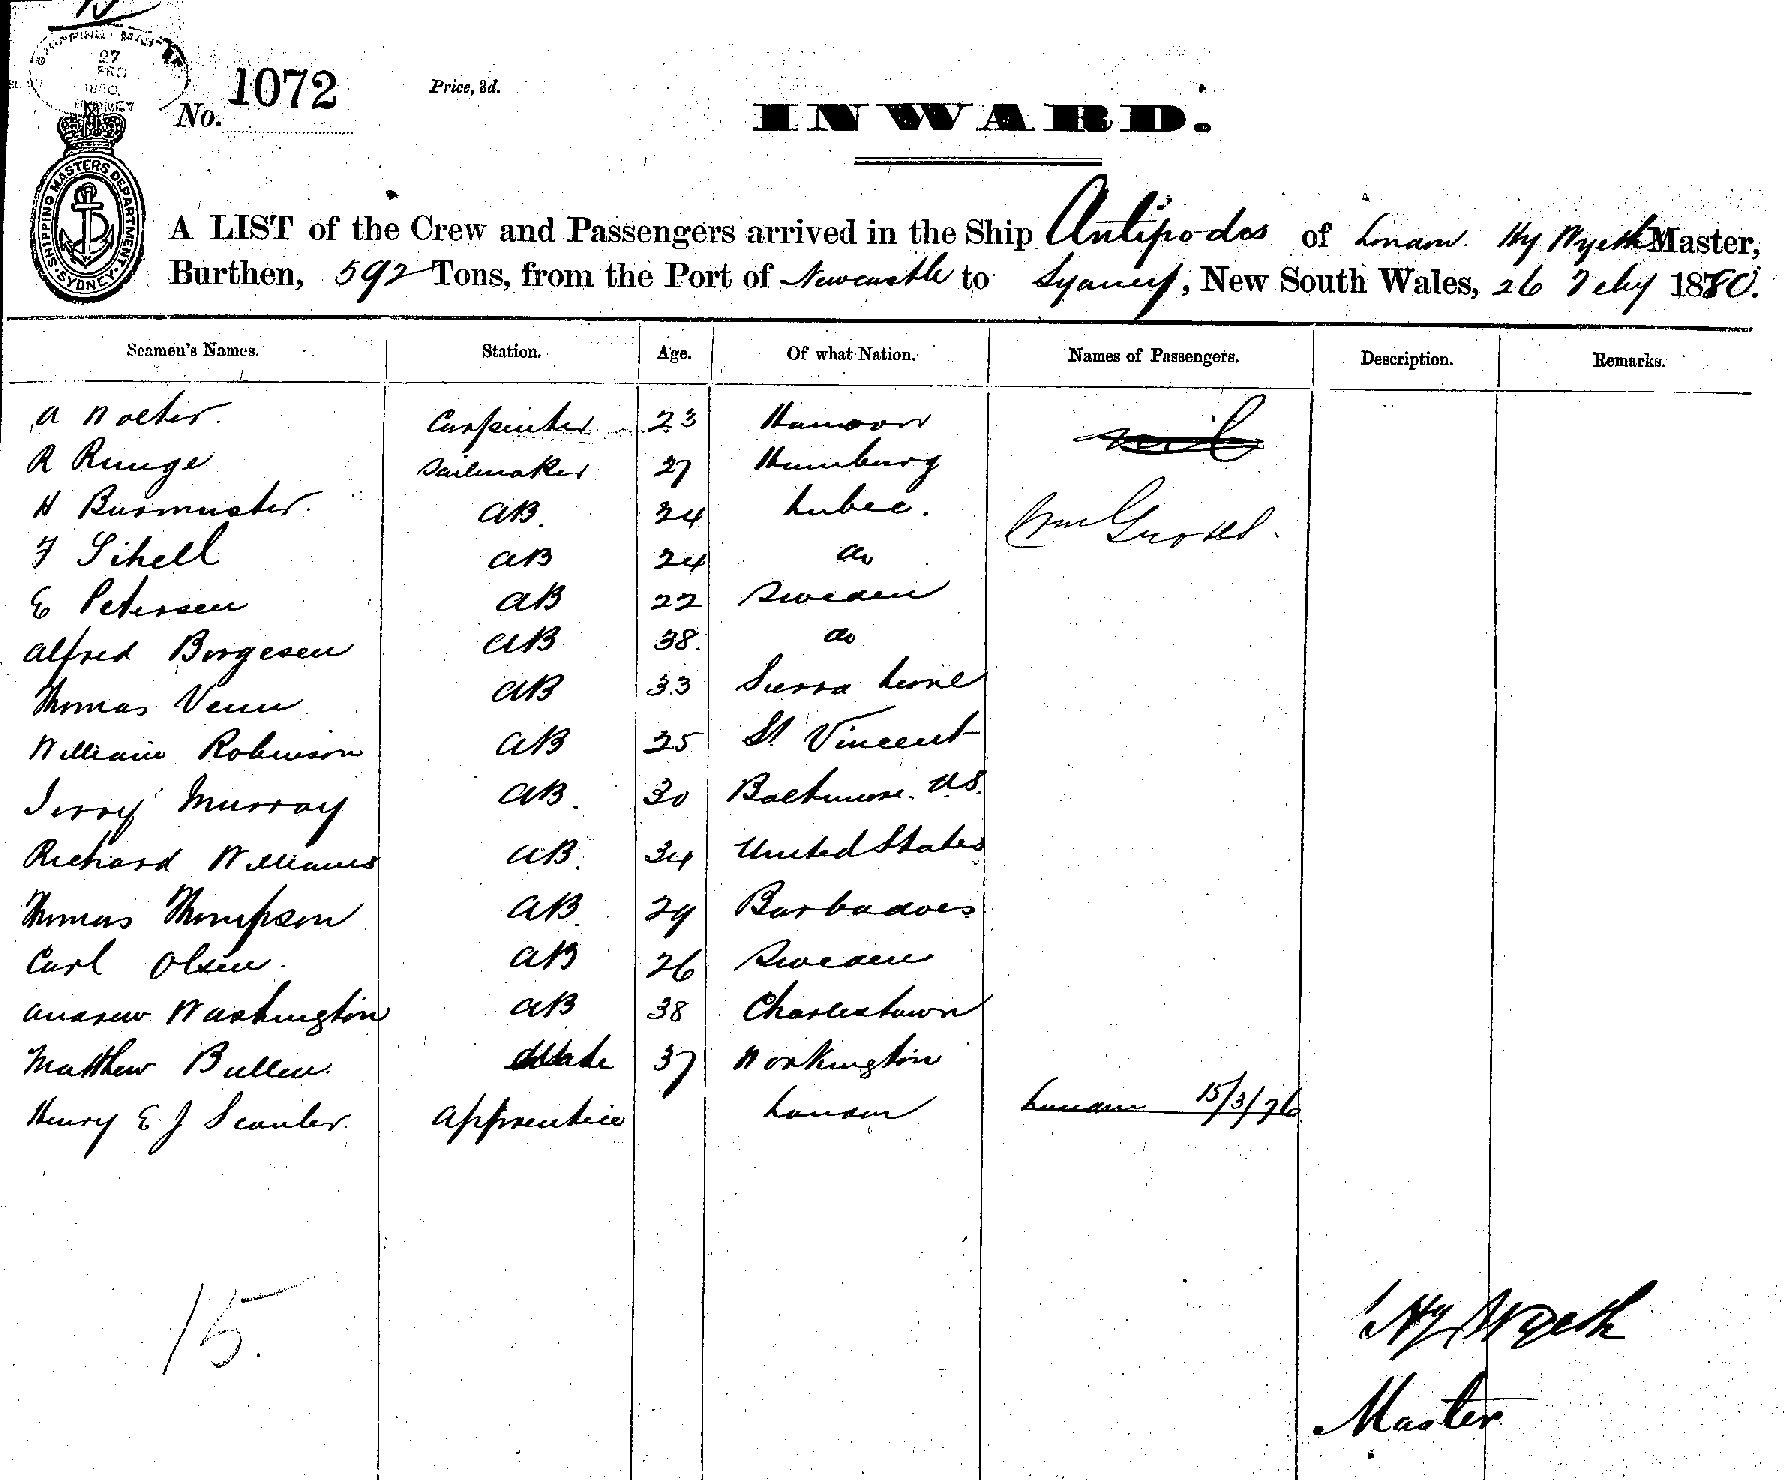 27
1880
SYDNEY
No. 1072
Price, 3d.
INWARD.
SHIPPING MASTERS DEPARTMENT SYDNEY
A LIST of the Crew and Passengers arrived in the Ship Antipodes of London Hy Wyeth Master,
Burthen, 592 Tons, from the Port of Newcastle to Sydney, New South Wales, 26 Feby 1880.
Seamen's Names. Station. Age. Of what Nation. Names of Passengers. Description. Remarks.
A Wolter Carpenter 23 Hanover nil
R Runge Sailmaker 27 Hamburg
H Burmuster AB. 24 Lubec. Wm
F Sihell AB 24 do
E Petersen AB 22 Sweden
Alfred Borgesen AB 38 do
Thomas Venn AB 33 Sierra Leone
William Robinson AB 25 St Vincent
Jerry Murray AB. 30 Baltimore. US.
Richard Williams AB. 34 United States
Thomas Thompson AB 29 Barbadoes
Carl Olsen AB 26 Sweden
Andrew Washington AB 38 Charlestown
Matthew Bullen Mate 37 Workington
Henry E J Scouler Apprentice London London 15/3/76
15.
Hy Wyeth
Master